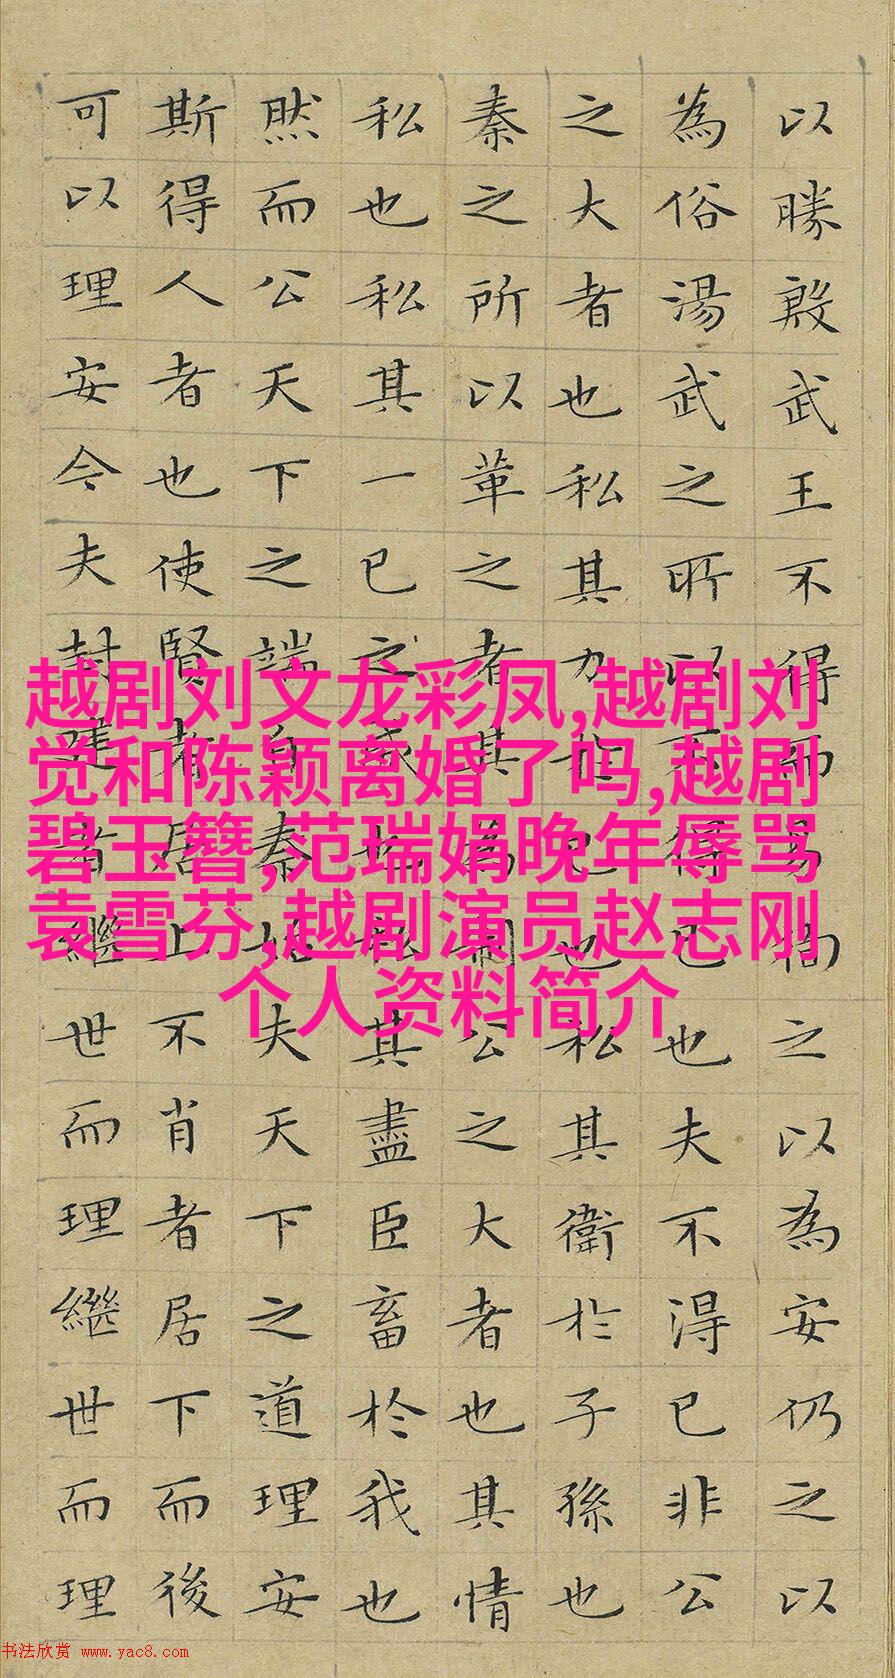 以勝殷武王不得而易徇之以為安仍之以
為俗湯武之所以不得已也夫不得已非公
之大者也私其力於己也私其衛於子孫也
秦之所以革之者其為制公之大者也其情
私也私其一己之威也私其盡臣畜於我也
然而公天下之端自秦始夫天下之道理安
斯得人者也使賢者居上不肖者居下而後
可以理安今夫封建者繼世而理繼世而理
越剧刘文龙彩凤,越剧刘
觉和陈颖离婚了吗,越剧
碧玉簪,范瑞娟晚年辱骂
袁雪芬,越剧演员赵志刚
个人资料简介
书法欣赏 www.yac8.com